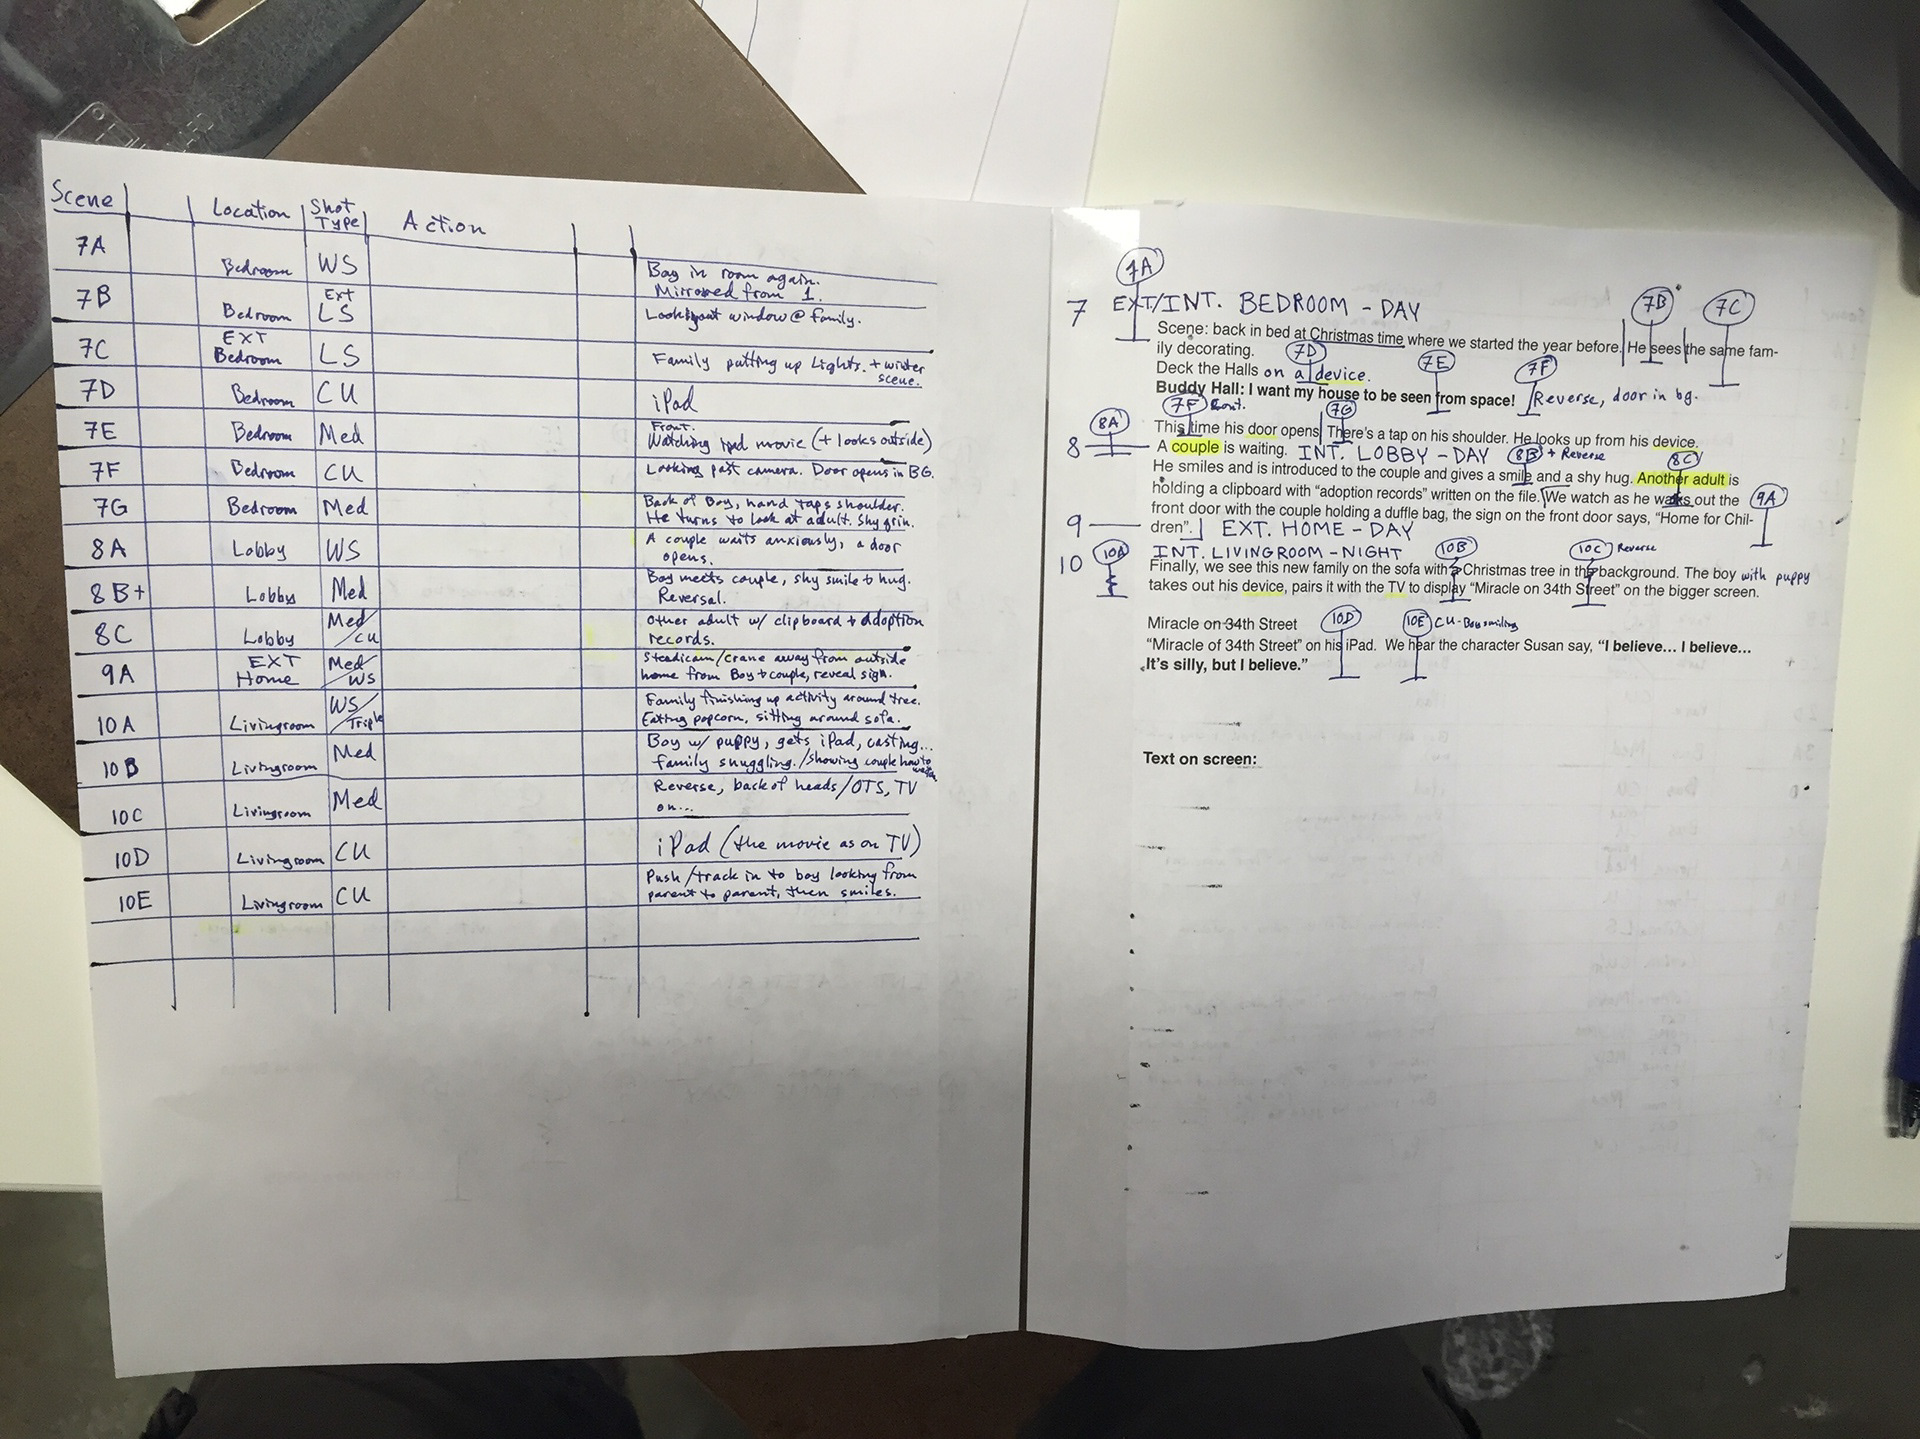 Scene Location Shot Type Action
7A Bedroom WS Boy in room again. Mirrored from 1.
7B Bedroom Ext LS Looks out window @ family.
7C EXT Bedroom LS Family putting up Lights. + winter scene.
7D Bedroom CU iPad
7E Bedroom Med Front. Watching ipad movie (+ looks outside)
7F Bedroom CU Looking past camera. Door opens in BG.
7G Bedroom Med Back of Boy, hand taps shoulder. He turns to look at adult. Shy grin.
8A Lobby WS A couple waits anxiously, a door opens.
8B+ Lobby Med Boy meets couple, shy smile + hug. Reversal.
8C Lobby Med/CU Other adult w/ clipboard + adoption records.
9A EXT Home Med/WS Steadicam/crane away from outside home from Boy + couple, reveal sign.
10A Livingroom WS/Triple Family finishing up activity around tree. Eating popcorn, sitting around sofa.
10B Livingroom Med Boy w/ puppy, gets iPad, casting... family snuggling. /Showing couple how to
10C Livingroom Med Reverse, back of heads/OTS, TV on...
10D Livingroom CU iPad (the movie as on TV)
10E Livingroom CU Push/track in to boy looking from parent to parent, then smiles.
7A
7 EXT/INT. BEDROOM - DAY 7B 7C
Scene: back in bed at Christmas time where we started the year before. He sees the same fam-
ily decorating. 7D 7E 7F
Deck the Halls on a device.
Buddy Hall: I want my house to be seen from space! Reverse, door in bg.
7F cont. 7G
8A This time his door opens There's a tap on his shoulder. He looks up from his device.
8 A couple is waiting. INT. LOBBY - DAY 8B + Reverse 8C
He smiles and is introduced to the couple and gives a smile and a shy hug. Another adult is
holding a clipboard with “adoption records” written on the file. We watch as he walks out the 9A
front door with the couple holding a duffle bag, the sign on the front door says, “Home for Chil-
9 dren”. EXT. HOME - DAY
10 10A INT. LIVINGROOM - NIGHT 10B 10C Reverse
Finally, we see this new family on the sofa with a Christmas tree in the background. The boy with puppy
takes out his device, pairs it with the TV to display “Miracle on 34th Street” on the bigger screen.
Miracle on 34th Street 10D 10E CU - Boy smiling
“Miracle of 34th Street” on his iPad. We hear the character Susan say, “I believe... I believe...
It's silly, but I believe.”
Text on screen: